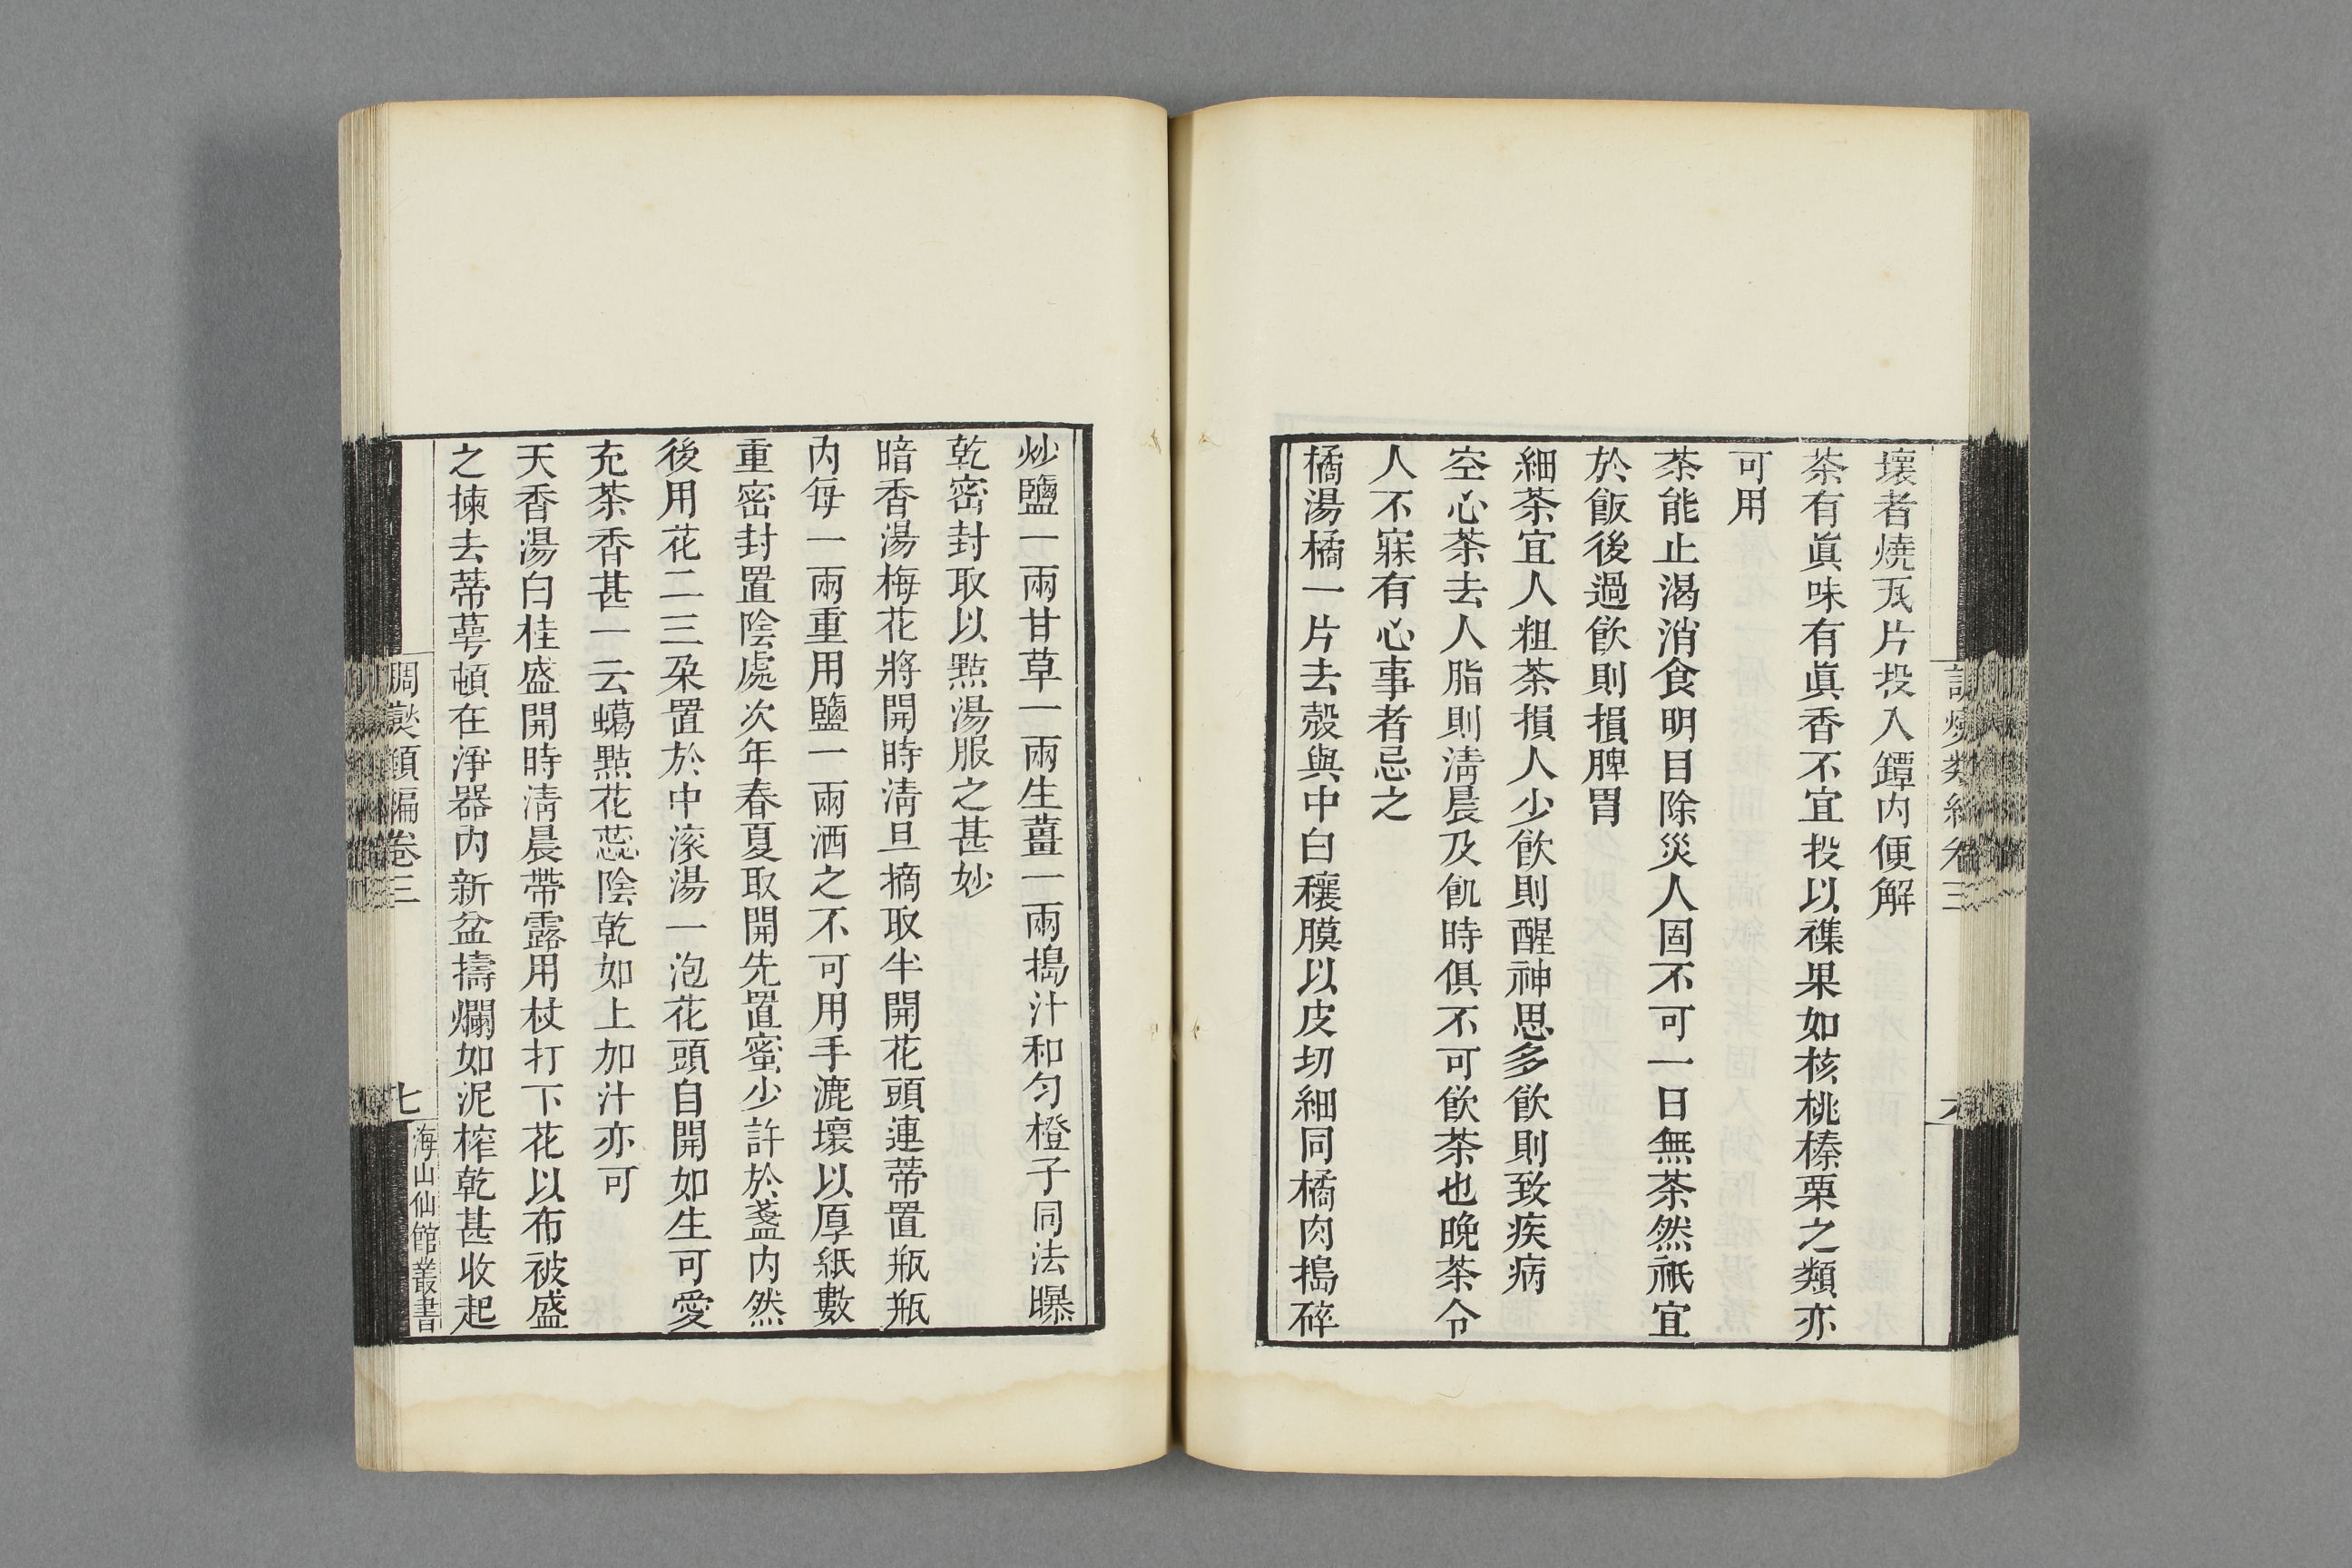 壞者燒瓦片投入鐔内便解
茶有眞味有眞香不宜投以襍果如核桃榛栗之類亦
可用
茶能止渴消食明目除災人固不可一日無茶然祇宜
於飯後過飲則損脾胃
細茶宜人粗茶損人少飲則醒神思多飲則致疾病
空心茶去人脂則淸晨及飢時俱不可飲茶也晚茶令
人不寐有心事者忌之
橘湯橘一片去殼與中白穰膜以皮切細同橘肉搗碎
炒鹽一兩甘草一兩生薑一兩搗汁和匀橙子同法曝
乾密封取以點湯服之甚妙
暗香湯梅花將開時淸旦摘取半開花頭連蒂置瓶瓶
内每一兩重用鹽一兩洒之不可用手漉壞以厚紙數
重密封置陰處次年春夏取開先置蜜少許於盞内然
後用花二三朶置於中滚湯一泡花頭自開如生可愛
充茶香甚一云蠟點花蕊陰乾如上加汁亦可
天香湯白桂盛開時淸晨帶露用杖打下花以布被盛
之揀去蒂萼頓在淨器内新盆擣爛如泥榨乾甚收起
調燮類編卷三
七
海山仙館叢書